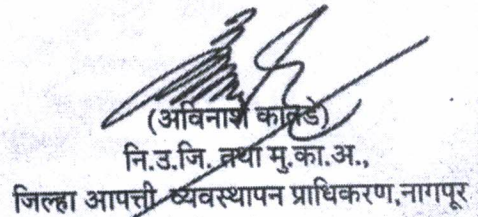 (अविनाश कातडे)
नि.उ.जि. तथा मु.का.अ.,
जिल्हा आपत्ती व्यवस्थापन प्राधिकरण,नागपूर